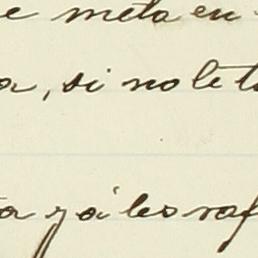 e meta en
a, si no le t
ta y á les raf